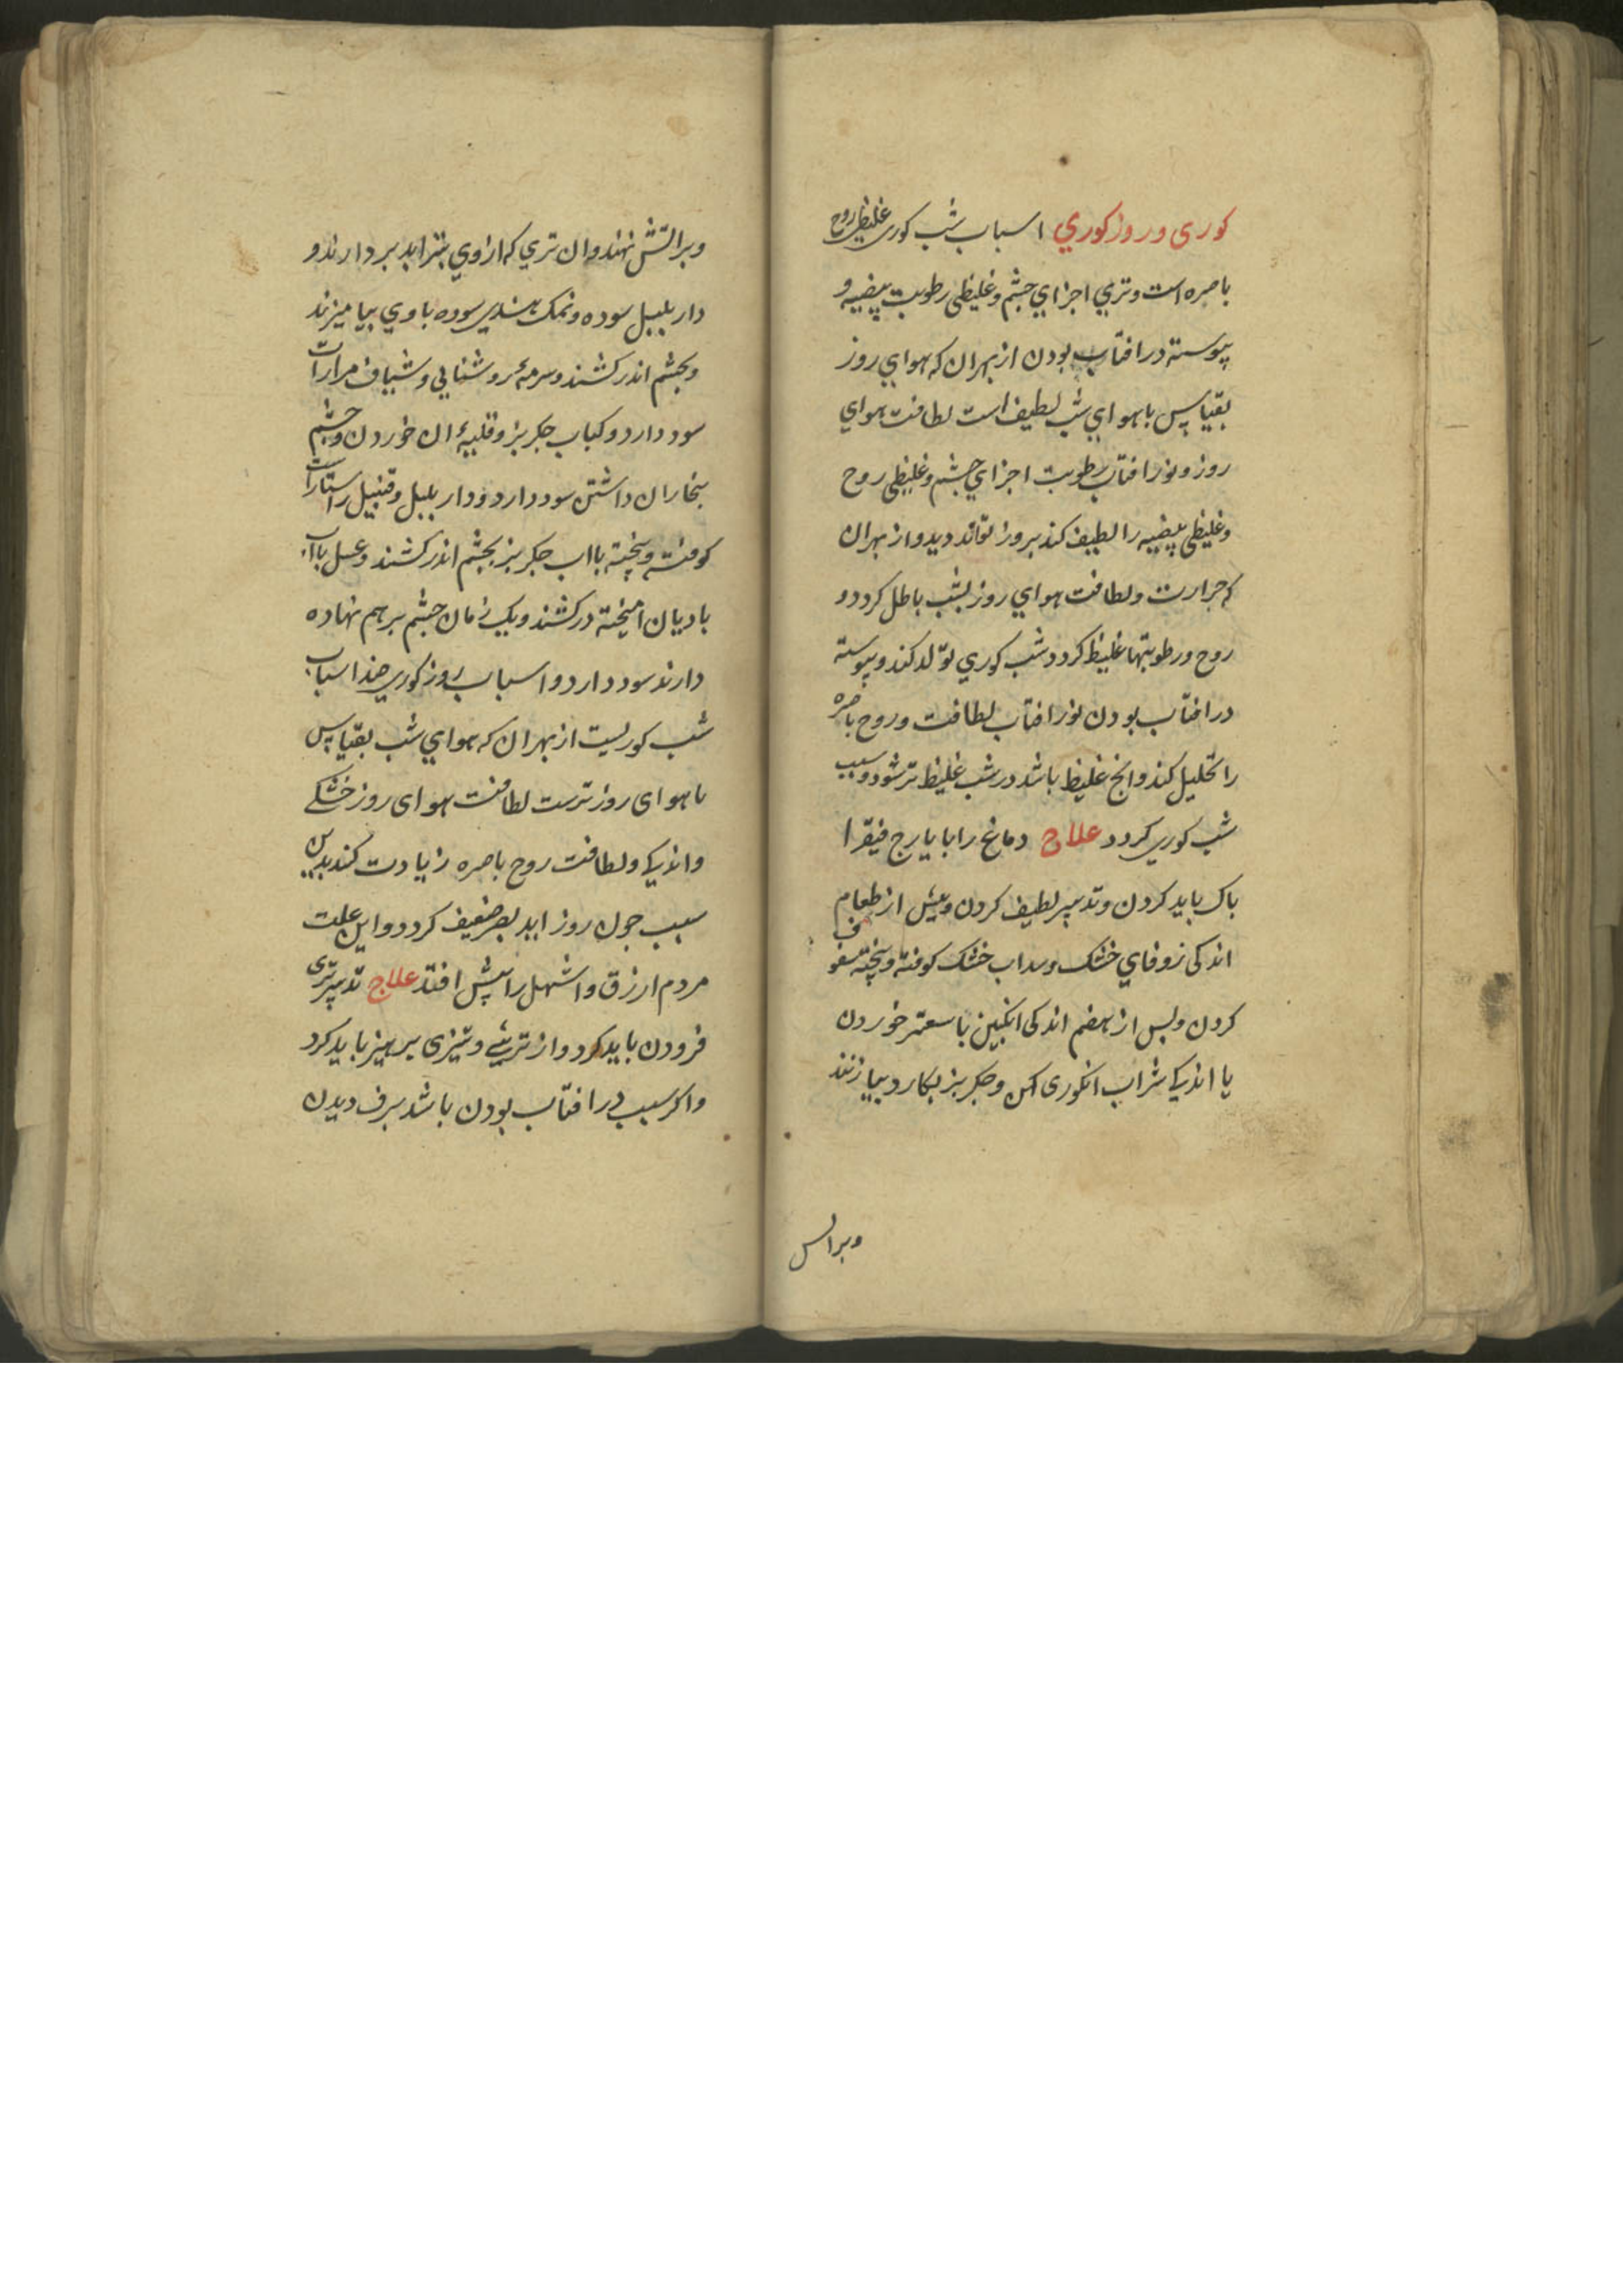 کوری و روزکوري اسباب شب کوری غلیظی روح
باصره است و تري اجزاي چشم و غلیظی رطوبت بیضیه و
پیوسته در افتاب بودن از بهران که هواي روز
بقیاس با هواي شب لطیف است لطافت هواي
روز و نور افتاب رطوبت اجزاي چشم و غلیظی روح
و غلیظی بیضیه را لطیف کند بروز تواند دید و از بهران
که حرارت و لطافت هواي روز بشب باطل کردد و
روح و رطوبتها غلیظ کردد شب کوري تولد کند و پیوسته
در افتاب بودن نور افتاب لطافت و روح باصره
را تحلیل کند وانچ غلیظ باشد در شب غلیظ تر شود و سبب
شب کوري کردد علاج دماغ را بایارج فیقرا
باک باید کردن و تدبیر لطیف کردن و بیش از طعام
اندکی زوفاي خشک و سداب خشک کوفته و بیخته سفوف
کردن و بس از هضم اندکی انکبین با سعتر خوردن
یا اندکے شراب انکوری کهن و جکر بز بکارد بیازنند
وبراتش
وبراتش نهند و ان تري که ازوي بتزابد بردارند و
دار بلبل سوده و نمک هندي سوده با وي بیامیزند
و بچشم اندر کشند و سرمهٔ روشنایي و شیاف مرارات
سود دارد و کباب جکر بز و قلیهٔ ان خوردن و چشم
ببخار ان داشتن سود دارد و دار بلبل و قنبیل راستاراست
کوفته و بیخته با اب جکر بز بچشم اندر کشند و عسل با اب
بادیان امیخته درکشند و یک زمان چشم برهم نهاده
دارند سود دارد و اسباب روز کوري ضد اسباب
شب کوریست از بهران که هواي شب بقیاس
با هوای روز ترست لطافت هوای روز خشکے
واندکے و لطافت روح باصره زیادت کند بدین
سبب جون روز اید بصر ضعیف کردد و این علت
مردم ارزق و اشهل را بیش افتد علاج تدبیر تری
فزودن باید کرد و از ترشے و تیزی برهیز باید کرد
واکر سبب در افتاب بودن باشد برف دیدن